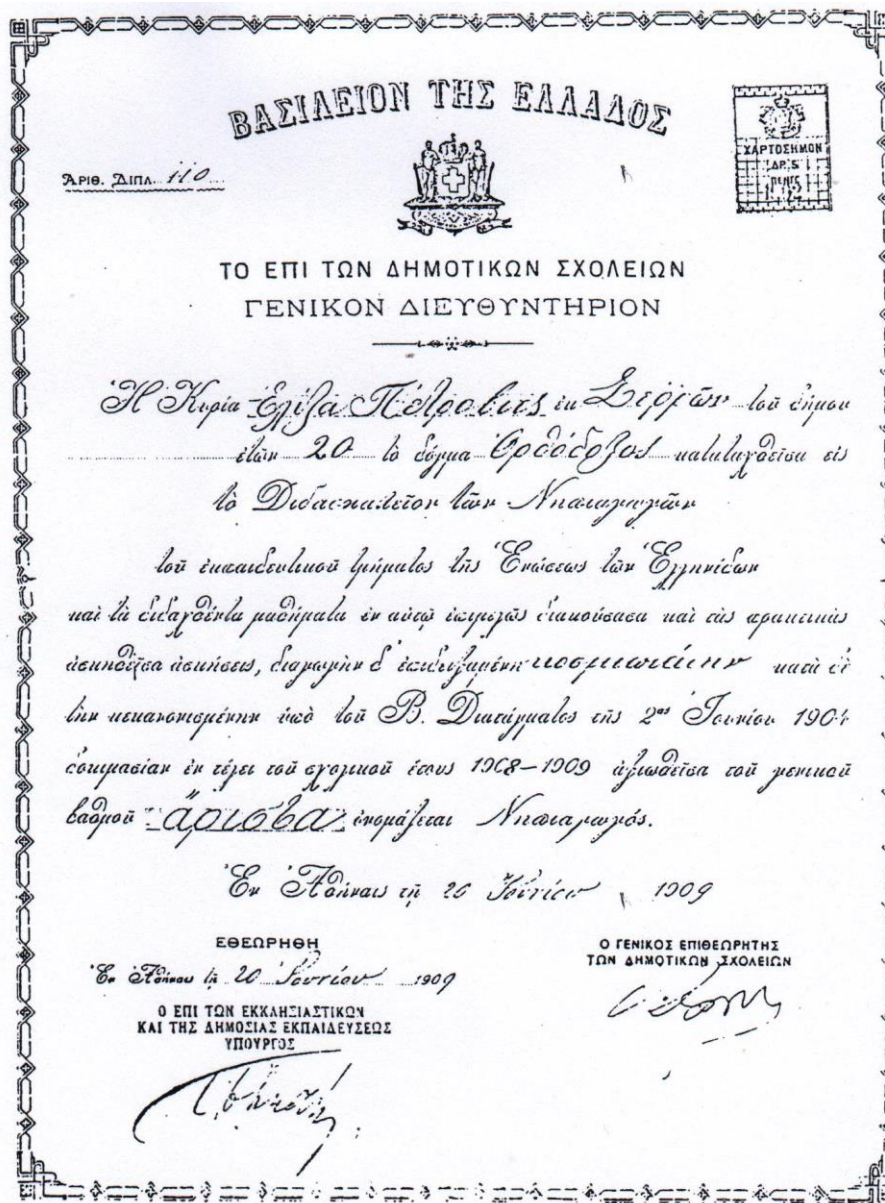 ΒΑΣΙΛΕΙΟΝ ΤΗΣ ΕΛΛΑΔΟΣ
ΑΡΙΘ. ΔΙΠΛ. 110
ΧΑΡΤΟΣΗΜΟΝ
ΔΡ. 5
ΠΕΝΤΕ
ΤΟ ΕΠΙ ΤΩΝ ΔΗΜΟΤΙΚΩΝ ΣΧΟΛΕΙΩΝ
ΓΕΝΙΚΟΝ ΔΙΕΥΘΥΝΤΗΡΙΟΝ
Ἡ Κυρία Ἐλίζα Πέτροβιτς ἐκ Σερρῶν τοῦ δήμου
ἐτῶν 20 τὸ δόγμα Ὀρθόδοξος καταταχθεῖσα εἰς
τὸ Διδασκαλεῖον τῶν Νηπιαγωγῶν
τοῦ ἐκπαιδευτικοῦ τμήματος τῆς Ἑνώσεως τῶν Ἑλληνίδων
καὶ τὰ διδαχθέντα μαθήματα ἐν αὐτῷ ἐπιμελῶς διακούσασα καὶ τὰς πρακτικὰς
ἀσκηθεῖσα ἀσκήσεις, διαγωγὴν δ' ἐπιδειξαμένη κοσμιωτάτην κατὰ δὲ
τὴν κεκανονισμένην ὑπὸ τοῦ Β. Διατάγματος τῆς 2ας Ἰουνίου 1904
δοκιμασίαν ἐν τέλει τοῦ σχολικοῦ ἔτους 1908-1909 ἀξιωθεῖσα τοῦ γενικοῦ
βαθμοῦ ἄριστα ὀνομάζεται Νηπιαγωγός.
Ἐν Ἀθήναις τῇ 20 Ἰουνίου 1909
ΕΘΕΩΡΗΘΗ
Ἐν Ἀθήναις τῇ 20 Ἰουνίου 1909
Ο ΕΠΙ ΤΩΝ ΕΚΚΛΗΣΙΑΣΤΙΚΩΝ
ΚΑΙ ΤΗΣ ΔΗΜΟΣΙΑΣ ΕΚΠΑΙΔΕΥΣΕΩΣ
ΥΠΟΥΡΓΟΣ
Ο ΓΕΝΙΚΟΣ ΕΠΙΘΕΩΡΗΤΗΣ
ΤΩΝ ΔΗΜΟΤΙΚΩΝ ΣΧΟΛΕΙΩΝ